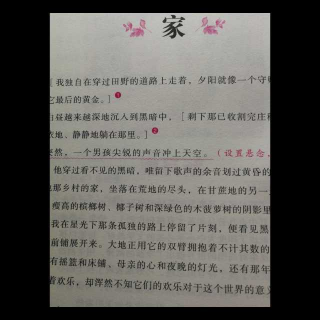 家
[我独自在穿过田野的道路上走着，夕阳就像一个守
它最后的黄金。]❶
白昼越来越深地沉入到黑暗中，[剩下那已收割完庄
寂地、静静地躺在那里。]❷
突然，一个男孩尖锐的声音冲上天空。（设置悬念，
他穿过看不见的黑暗，唯留下歌声的余音划过黄昏的
他那乡村的家，坐落在荒地的尽头，在甘蔗地的另一
瘦高的槟榔树、椰子树和深绿色的木菠萝树的阴影里
我在星光下那条孤独的路上停留了片刻，便看见黑
前铺展开来。大地正用它的双臂拥抱着不计其数的
有摇篮和床铺、母亲的心和夜晚的灯光，还有那年
着欢乐，却浑然不知它们的欢乐对于这个世界的意义